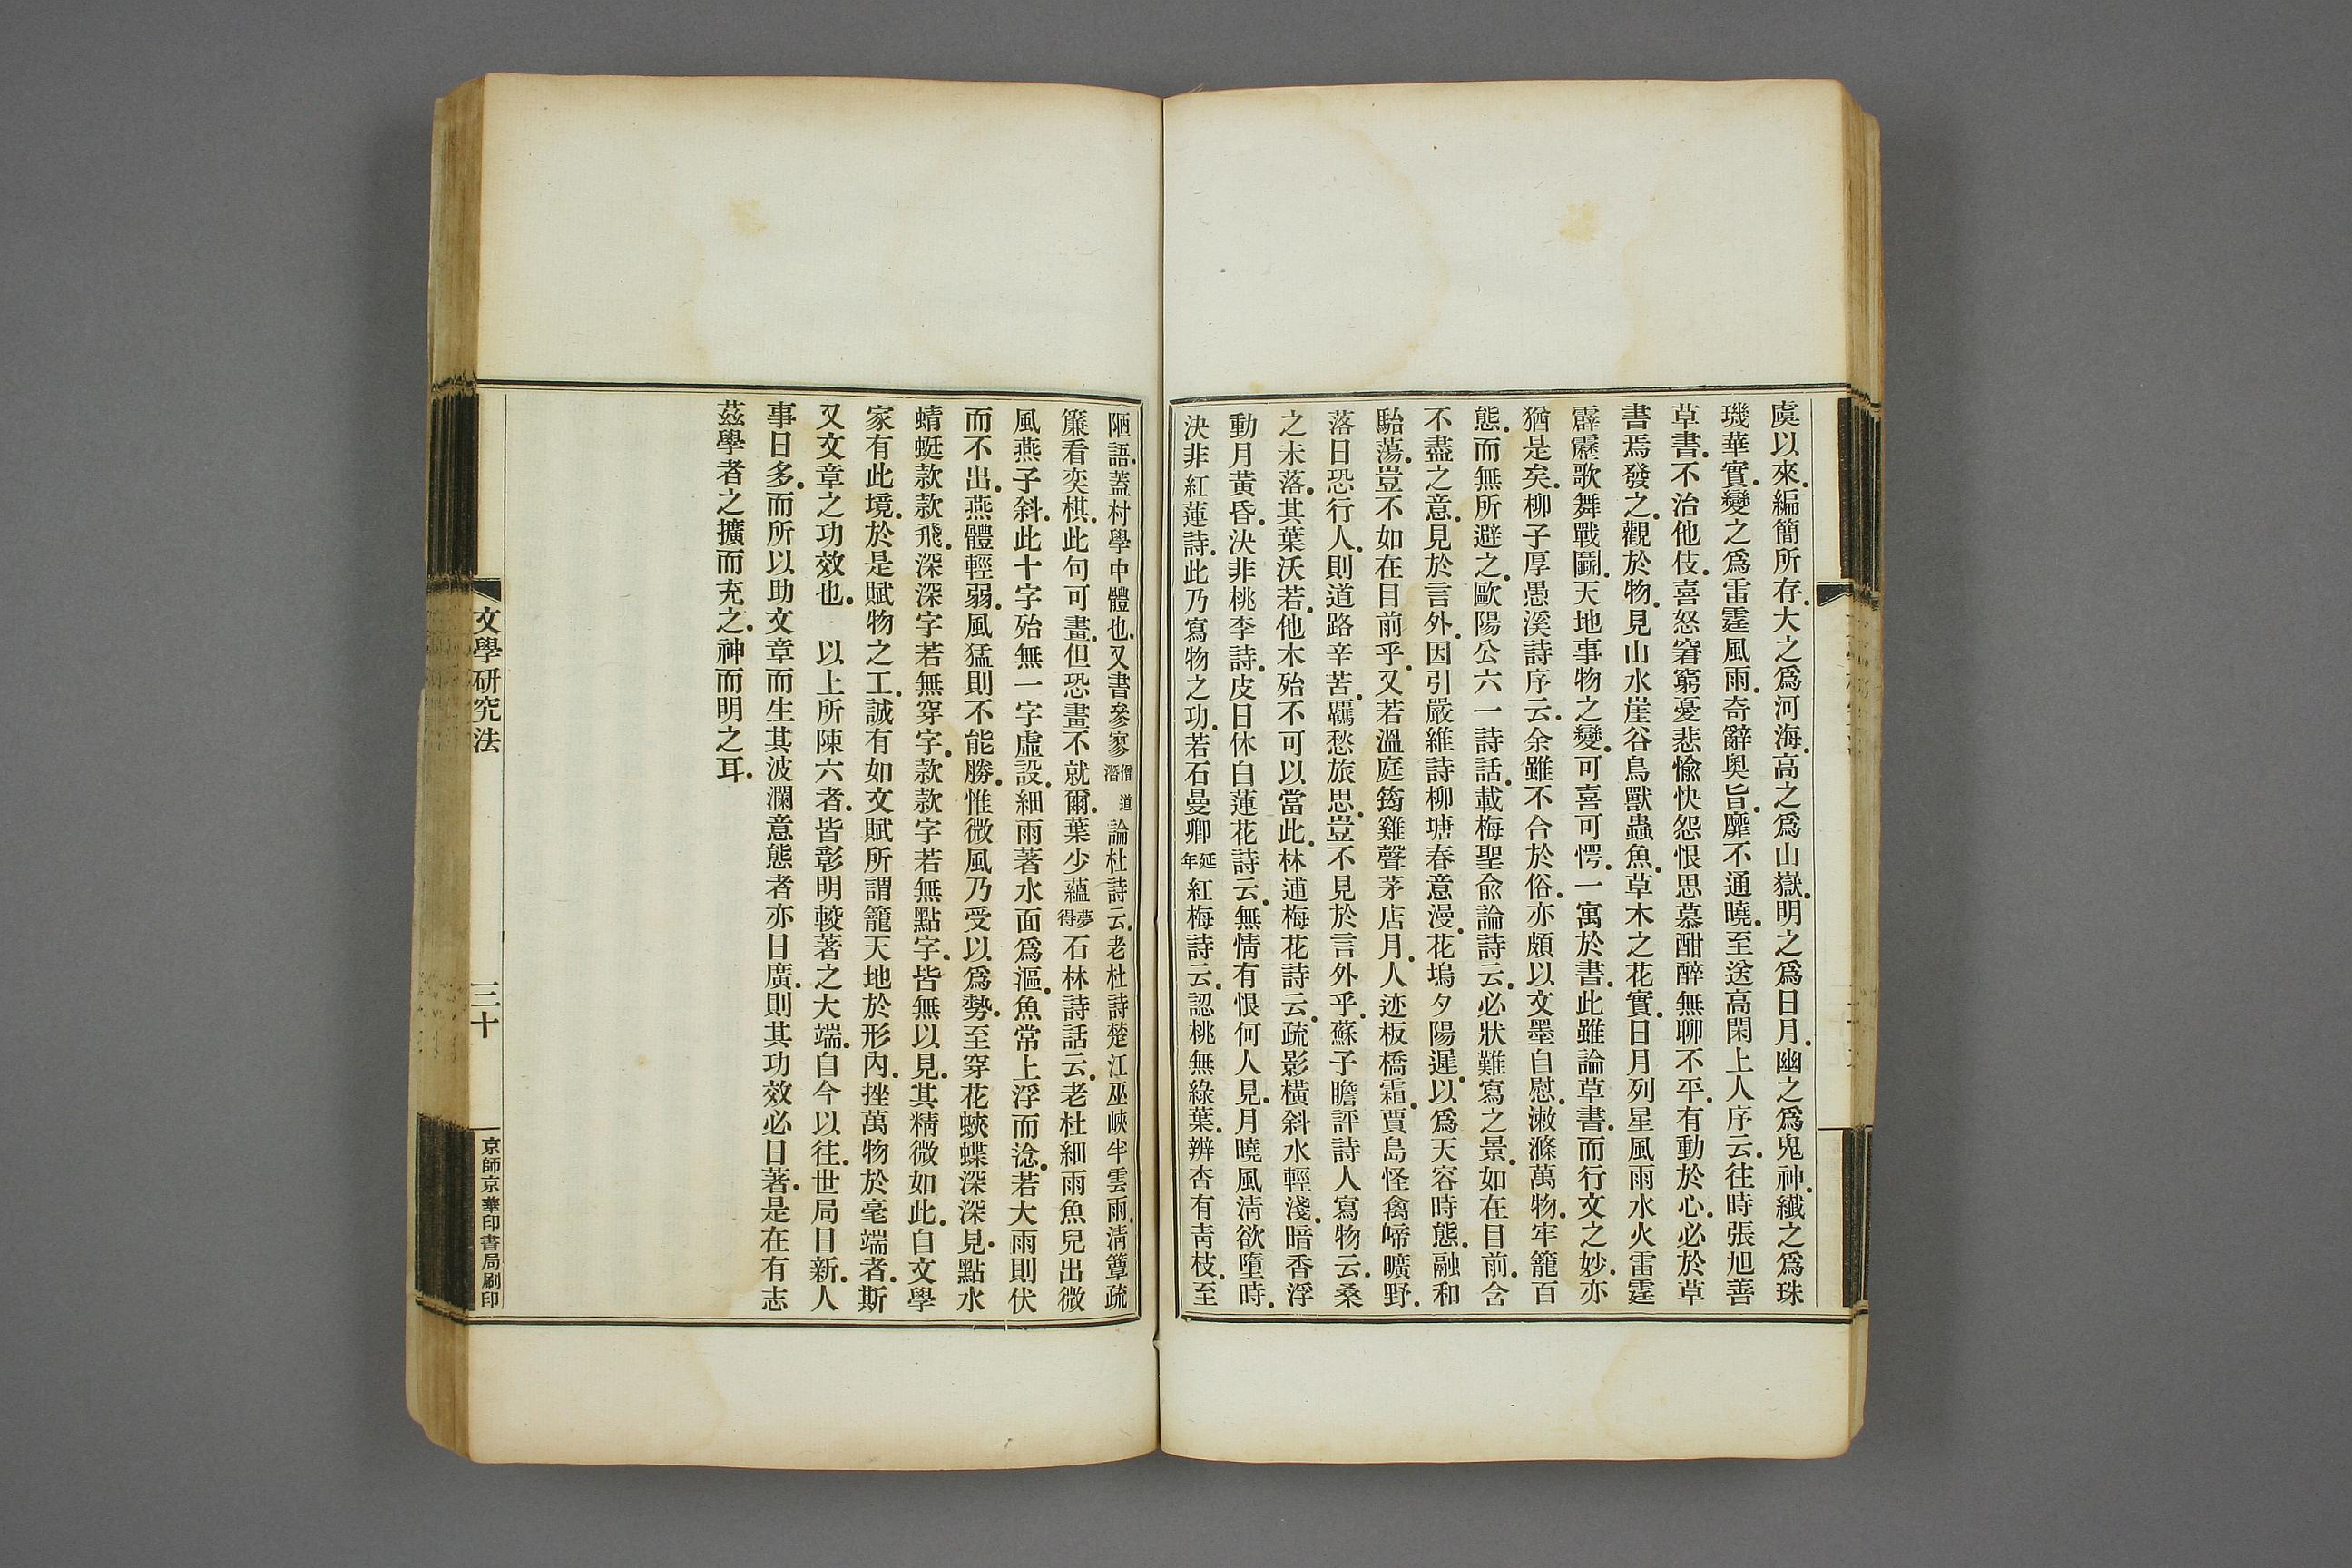 虞以來.編簡所存.大之爲河海.高之爲山嶽.明之爲日月.幽之爲鬼神.纖之爲珠
璣華實.變之爲雷霆風雨.奇辭奧旨.靡不通曉.至送高閑上人序云.往時張旭善
草書.不治他伎.喜怒窘窮憂悲愉快怨恨思慕酣醉無聊不平.有動於心.必於草
書焉發之.觀於物.見山水崖谷鳥獸蟲魚.草木之花實.日月列星風雨水火雷霆
霹靂歌舞戰鬭.天地事物之變.可喜可愕.一寓於書.此雖論草書.而行文之妙.亦
猶是矣.柳子厚愚溪詩序云.余雖不合於俗.亦頗以文墨自慰.漱滌萬物.牢籠百
態.而無所避之.歐陽公六一詩話.載梅聖俞論詩云.必狀難寫之景.如在目前.含
不盡之意.見於言外.因引嚴維詩柳塘春意漫.花塢夕陽遲.以爲天容時態.融和
駘蕩.豈不如在目前乎.又若溫庭筠雞聲茅店月.人迹板橋霜.賈島怪禽啼曠野.
落日恐行人.則道路辛苦.羈愁旅思.豈不見於言外乎.蘇子瞻評詩人寫物云.桑
之未落.其葉沃若.他木殆不可以當此.林逋梅花詩云.疏影橫斜水輕淺.暗香浮
動月黃昏.決非桃李詩.皮日休白蓮花詩云.無情有恨何人見.月曉風淸欲墮時.
決非紅蓮詩.此乃寫物之功.若石曼卿延年紅梅詩云.認桃無綠葉.辨杏有靑枝.至
陋語.蓋村學中體也.又書參寥僧道潛論杜詩云.老杜詩楚江巫峽半雲雨.淸簟疏
簾看奕棋.此句可畫.但恐畫不就爾.葉少蘊夢得石林詩話云.老杜細雨魚兒出微
風燕子斜.此十字殆無一字虛設.細雨著水面爲漚.魚常上浮而淰.若大雨則伏
而不出.燕體輕弱.風猛則不能勝.惟微風乃受以爲勢.至穿花蛺蝶深深見.點水
蜻蜓款款飛.深深字若無穿字.款款字若無點字.皆無以見.其精微如此.自文學
家有此境.於是賦物之工.誠有如文賦所謂籠天地於形內.挫萬物於毫端者.斯
又文章之功效也.　以上所陳六者.皆彰明較著之大端.自今以往.世局日新.人
事日多.而所以助文章而生其波瀾意態者亦日廣.則其功效必日著.是在有志
茲學者之擴而充之.神而明之耳.
文學研究法
三十
京師京華印書局刷印